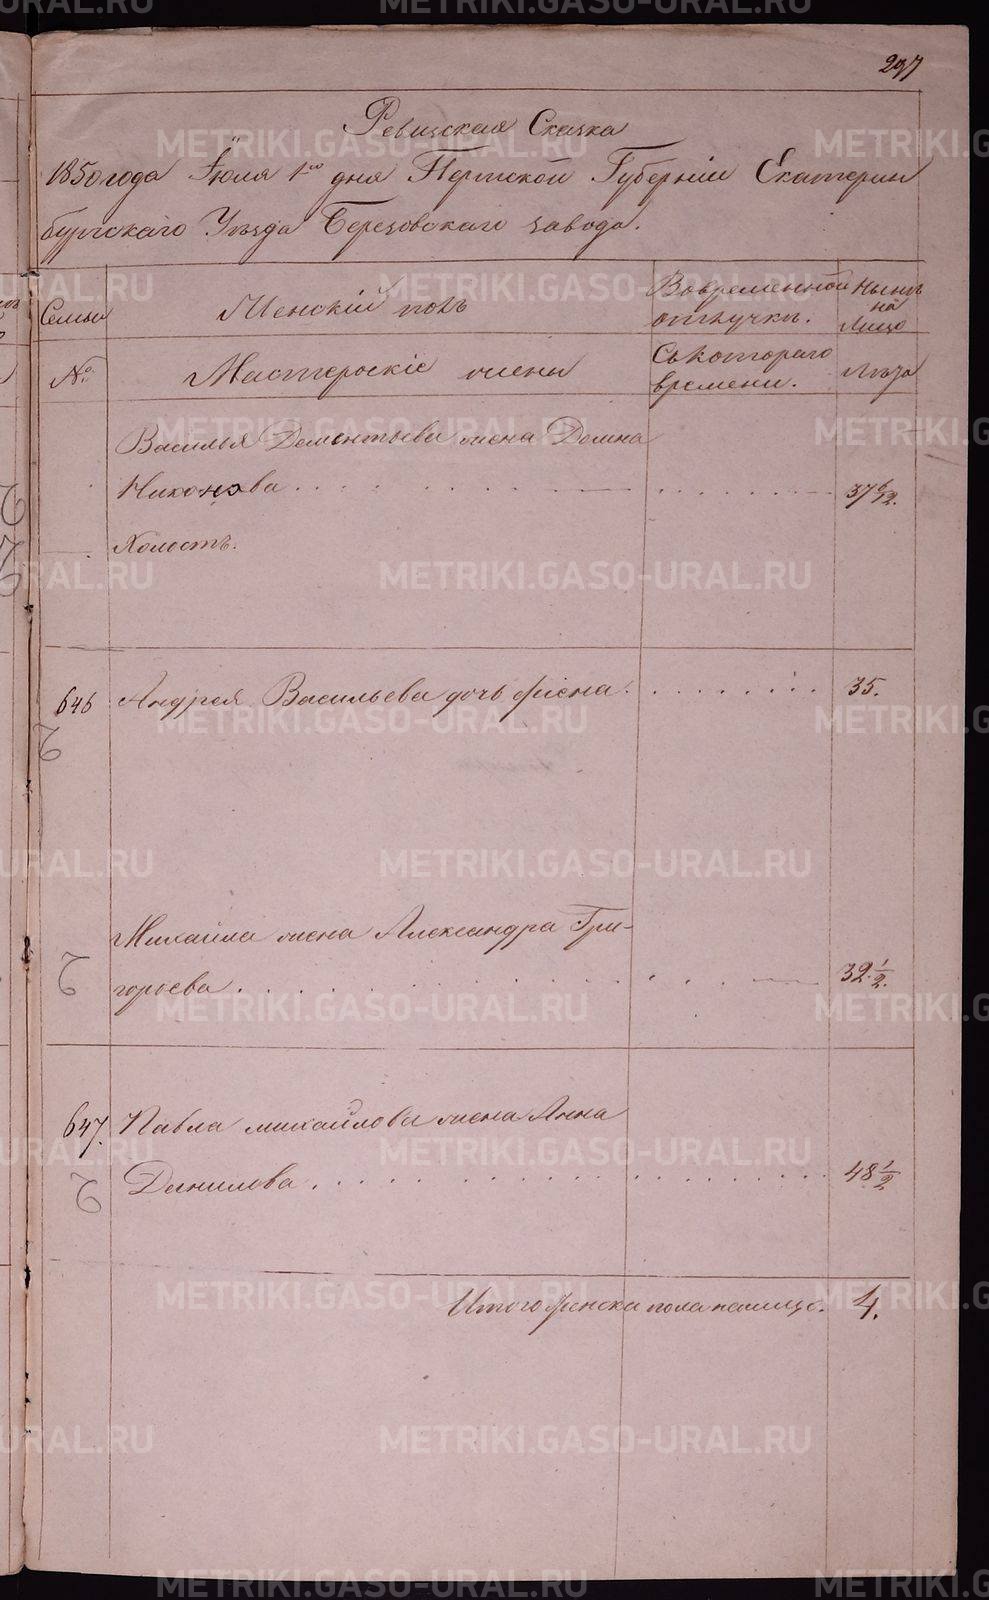 297
Ревизская Сказка
1850 года Іюля 1го дня Пермской Губерніи Екатерин
бургскаго Уѣзда Березовскаго завода.
Семьи
Женскій полъ
Во временной
отлучкѣ.
Нынѣ
на
Лицо
№
Мастерскіе жены
Съ котораго
времени.
Лѣта
Василья Дементьева жена Домна
Никонова
37 6/12.
Холостъ.
646 Андрея Васильева дочь Фіена. 35.
Михаила жена Александра Гри-
горьева. 32 1/2.
647. Павла Михайлова жена Анна
Данилова. 48 1/2
Итого женска пола налицо. 4.
METRIKI.GASO-URAL.RU